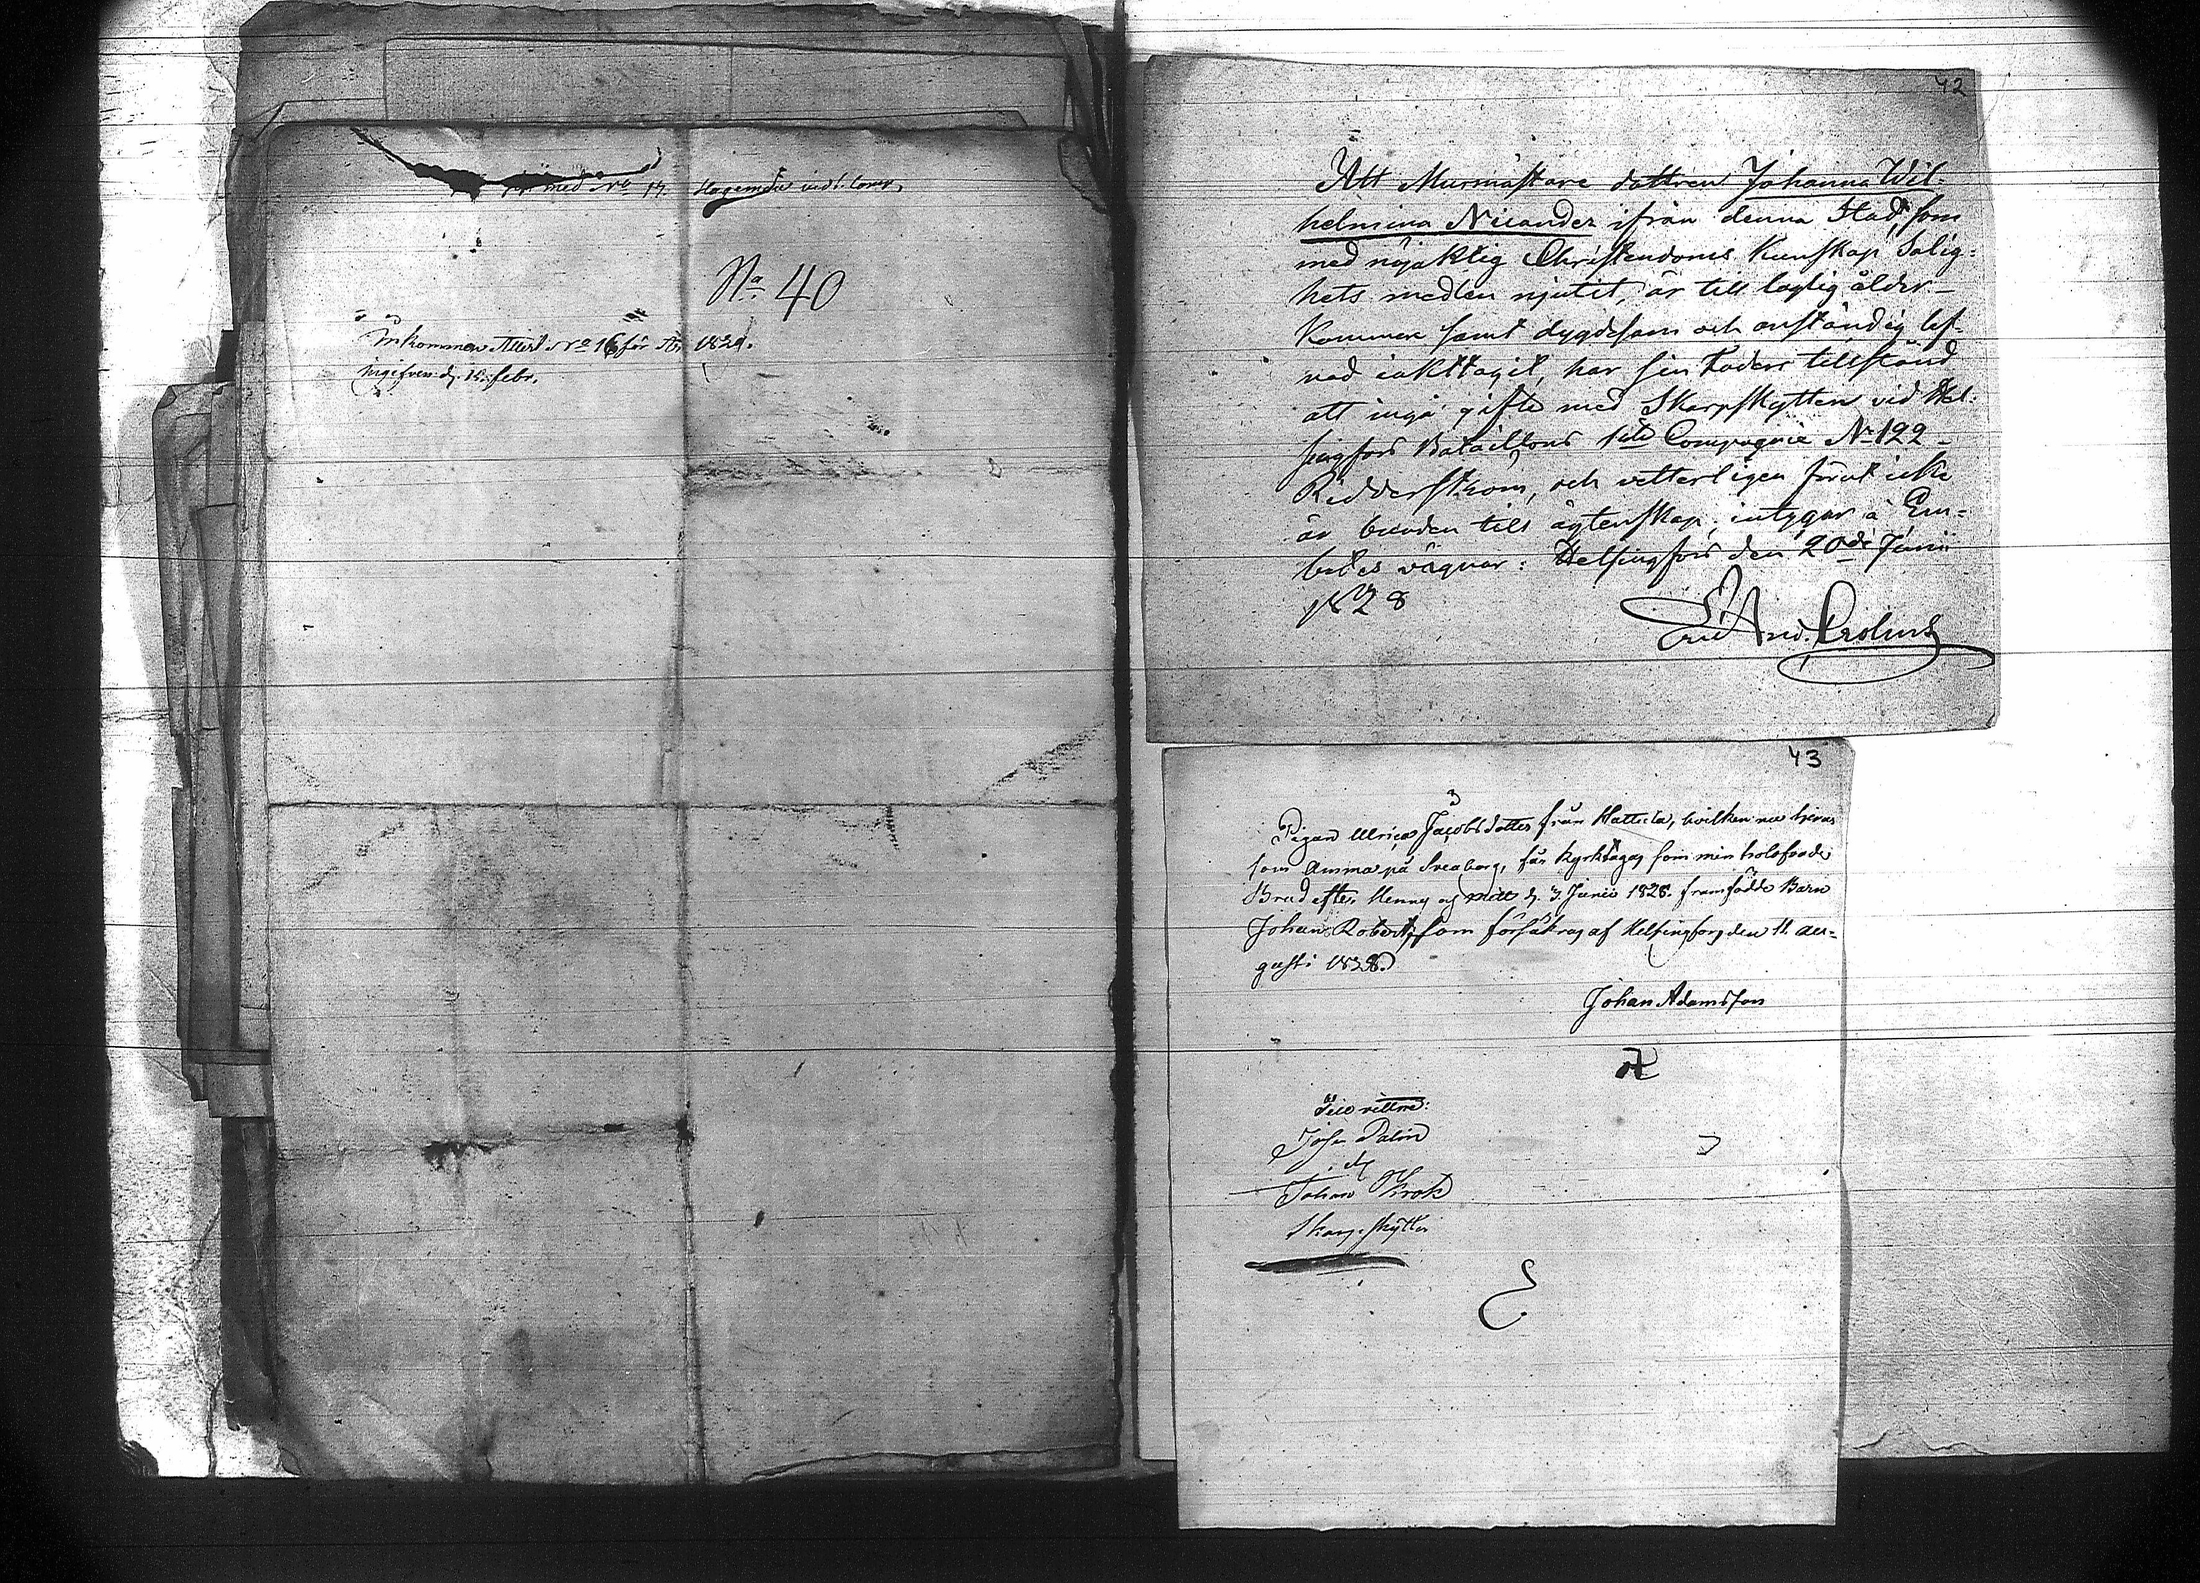 med No 17. Hagemdu vid 1. Comp.
No 40
Inkommen Attest No 16 för År 1829.
ingifven d. 15. febr.
42
Att Murmästare dottren Johanna Wil-
helmina Niiander ifrån denna Stad, som
med nöjaktig Christendoms Kunskap Salig-
hets medlen njutit, är till laglig ålder
kommen samt dygdesam och anständig lef-
nad iakttagit, har sin Faders tillstånd
att ingå gifte med Skarpskytten vid Hel-
singfors Bataillons 1sta Compagnie No 122
Ridderström, och vetterligen förut icke
är bunden till ägtenskap; intygar å Em-
betes vägnar: Helsingfors den 20de Junii
1828
Eric And. Crolius
43
Pigan Ulrica Jacobsdotter från Hattula, hvilken nu tienar
som Amma på Sveaborg, får kyrktagas som min trolofvade
Brud efter henny og mitt d. 3 Junii 1828. framfödde Barn
Johan Robert, som försäkras af Helsingfors den 11. Au-
gusti 1828.
Johan Adamsson
Till vittne:
Johan Krok
Skarpskytter